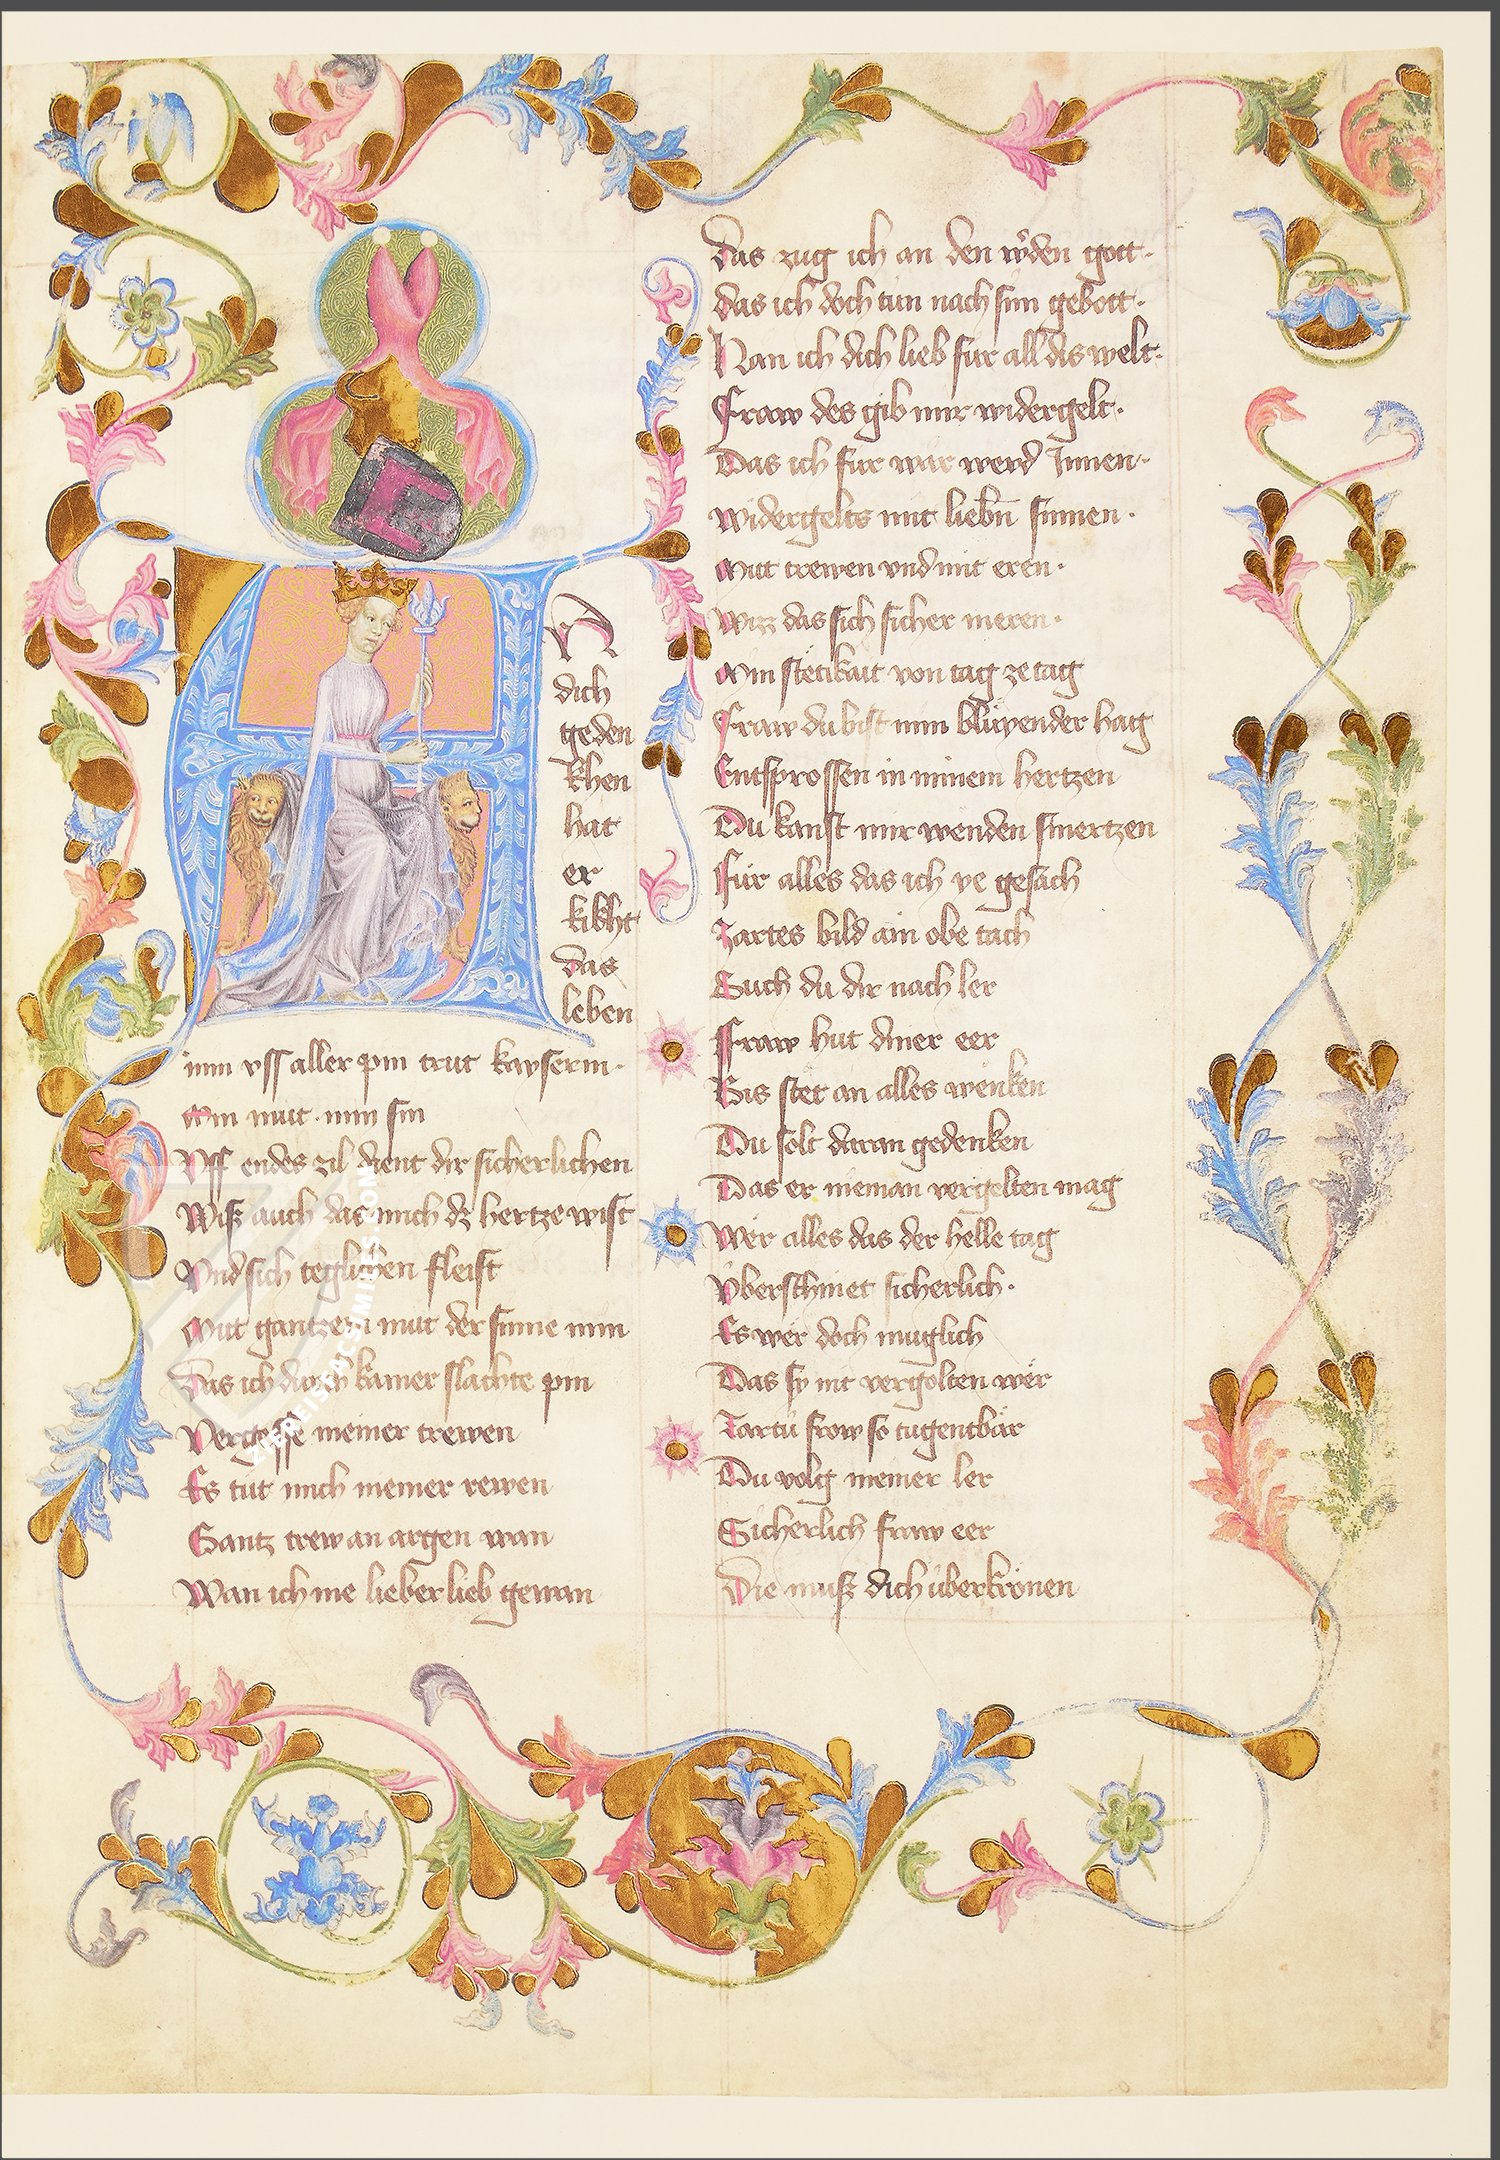 An
dich
geden
khen
hat
er
kikht
das
leben
min vss aller pin trut kayserin·
Min mut· min sin
Vff endes zil dient dir sicherlichen
Wiß auch das mich dz hertze wist
Vnd sich teglichen fleist
Mit gantzem mut der sinne min
Das ich durch kainer slachte pin
Vergesse meiner trewen
Es tüt mich meiner rewen
Gantz trew an argen wan
Wan ich nie lieber lieb gewan
das zug ich an den wͤden gott·
das ich doch tün nach sim gebott·
Nan ich dich lieb für all dis welt·
Fraw des gib mir widergelt·
Das ich für war werd Innen·
Widergelts mit liebn̄ sinnen·
Mit trewen vnd mit eren·
Wizz das sich sicher meren·
Min stetikait von tag ze tag
Fraw du bist min blüyender hag
Entsprossen in minem hertzen
Du kanst mir wenden smertzen
Für alles das ich ye gesach
Zartes bild ain obe tach
Such du dir nach ler
Fraw hut diner eer
Bis stet an alles wenken
Du solt daran gedenken
Das er nieman vergelten mag
Wer alles das der helle tag
Vberschinet sicherlich·
Es wer doch muglich
Das sy nit vergolten wer
Zartü frow so tugentbär
Du volg meiner ler
Sicherlich fraw eer
Die muß dich überkrönen
ZIEREIS FACSIMILES.COM